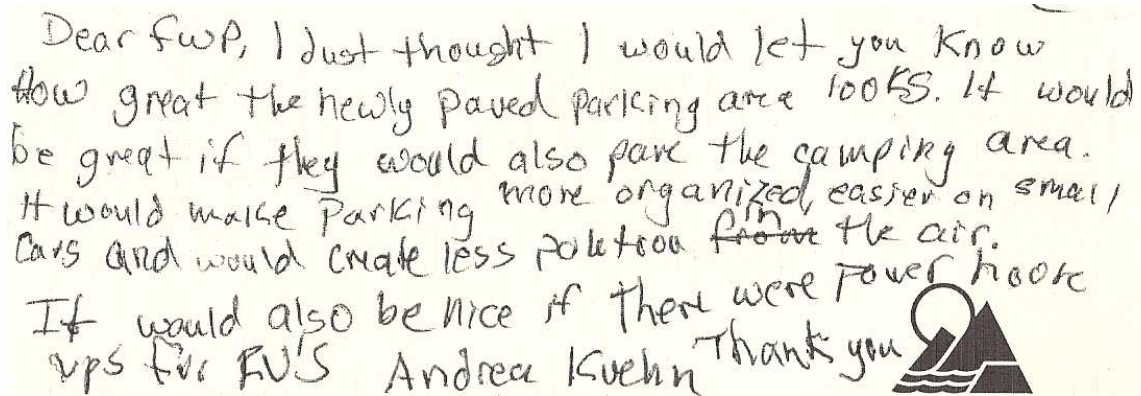 Dear FWP, I Just thought I would let you know
How great the newly paved parking area looks. It would
be great if they would also pave the camping area.
It would make Parking more organized, easier on small
Cars and would create less polution from in the air.
It would also be nice if there were Power hoook
ups for RV'S Andrea Kuehn Thank you